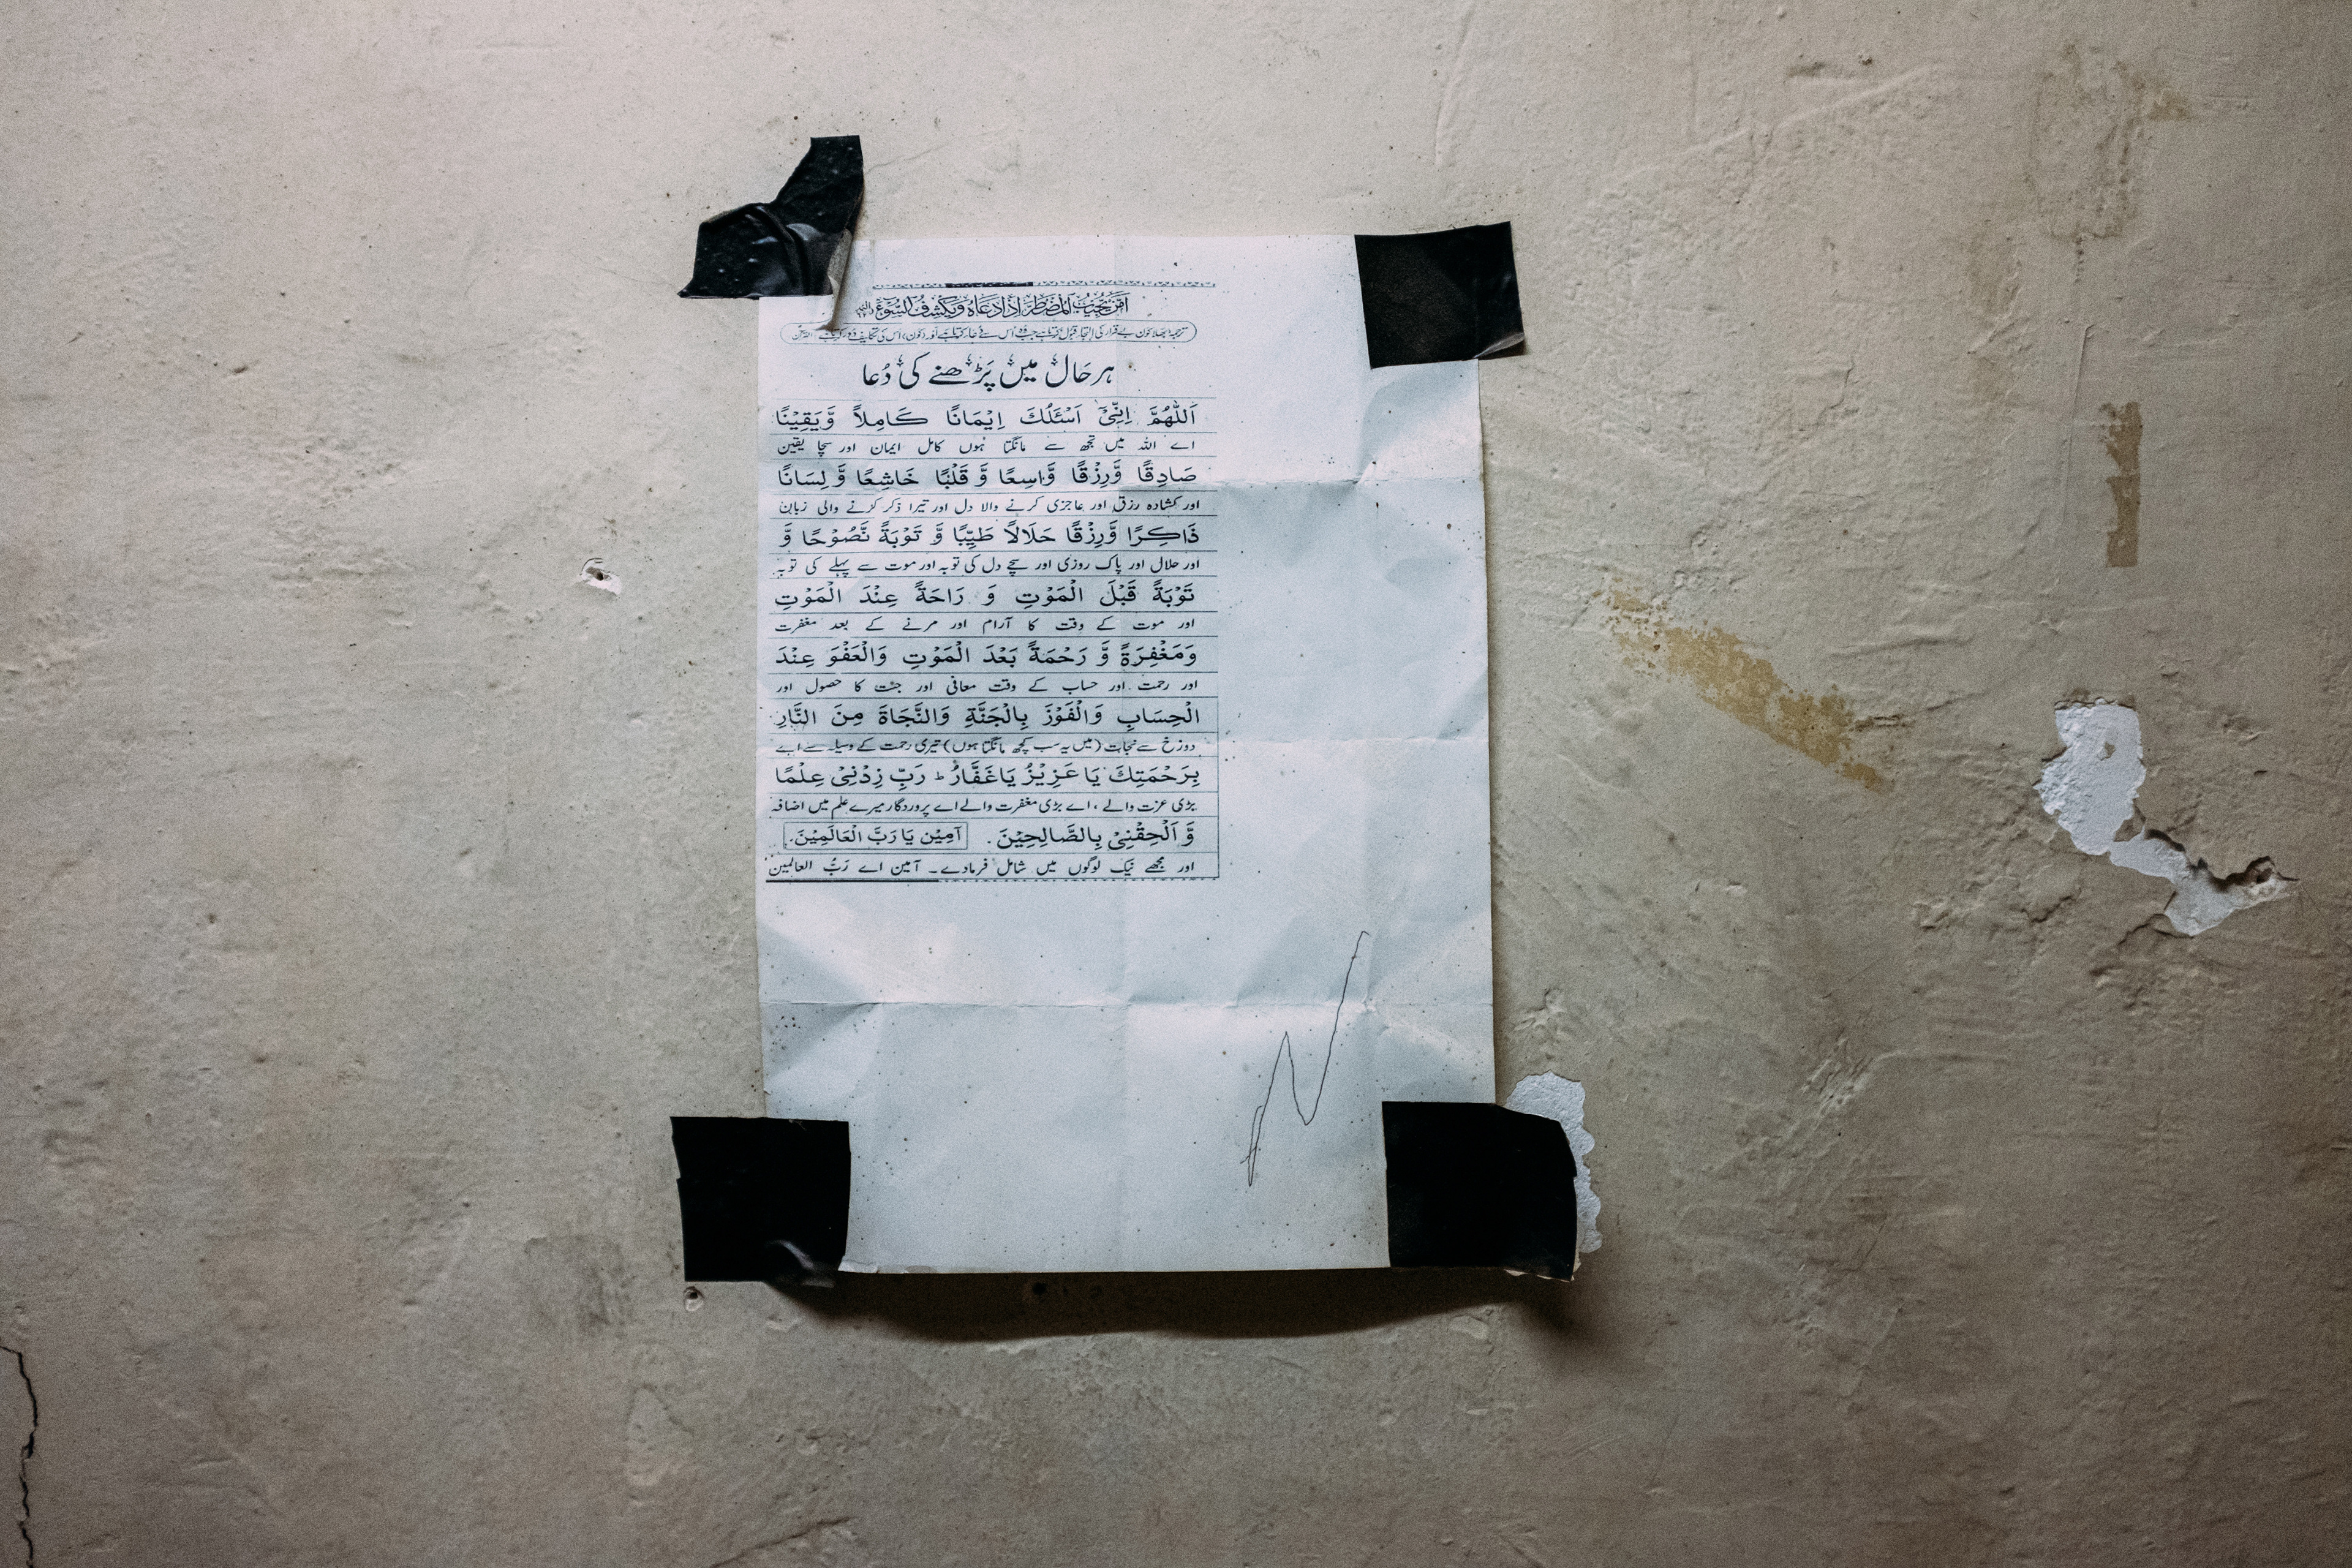 اَمَّنْ يُّجِيْبُ الْمُضْطَرَّ اِذَا دَعَاهُ وَيَكْشِفُ السُّوْٓءَ
ترجمہ: بھلا کون بے قرار کی التجا قبول کرتا ہے جب وہ اس سے دعا کرتا ہے اور (کون) اس کی تکلیف دور کرتا ہے
ہر حَال میں پَڑھنے کی دُعا
اَللّٰهُمَّ اِنِّیْٓ اَسْئَلُكَ اِيْمَانًا كَامِلاً وَّيَقِيْنًا
اے اللہ میں تجھ سے مانگتا ہوں کامل ایمان اور سچا یقین
صَادِقًا وَّرِزْقًا وَّاسِعًا وَّ قَلْبًا خَاشِعًا وَّ لِسَانًا
اور کشادہ رزق اور عاجزی کرنے والا دل اور تیرا ذکر کرنے والی زبان
ذَاكِرًا وَّرِزْقًا حَلَالاً طَيِّبًا وَّ تَوْبَةً نَّصُوْحًا وَّ
اور حلال اور پاک روزی اور سچے دل کی توبہ اور موت سے پہلے کی توبہ
تَوْبَةً قَبْلَ الْمَوْتِ وَ رَاحَةً عِنْدَ الْمَوْتِ
اور موت کے وقت کا آرام اور مرنے کے بعد مغفرت
وَمَغْفِرَةً وَّ رَحْمَةً بَعْدَ الْمَوْتِ وَالْعَفْوَ عِنْدَ
اور رحمت اور حساب کے وقت معافی اور جنت کا حصول اور
الْحِسَابِ وَالْفَوْزَ بِالْجَنَّةِ وَالنَّجَاةَ مِنَ النَّارِ
دوزخ سے نجات (میں یہ سب کچھ مانگتا ہوں) تیری رحمت کے وسیلہ سے اے
بِرَحْمَتِكَ يَا عَزِيْزُ يَاغَفَّارُ ط رَبِّ زِدْنِیْ عِلْمًا
بڑی عزت والے ، اے بڑی مغفرت والے اے پروردگار میرے علم میں اضافہ
وَّ اَلْحِقْنِیْ بِالصَّالِحِيْنَ. آمِيْن يَا رَبَّ الْعَالَمِيْنَ.
اور مجھے نیک لوگوں میں شامل فرمادے۔ آمین اے رَبُّ العالمین